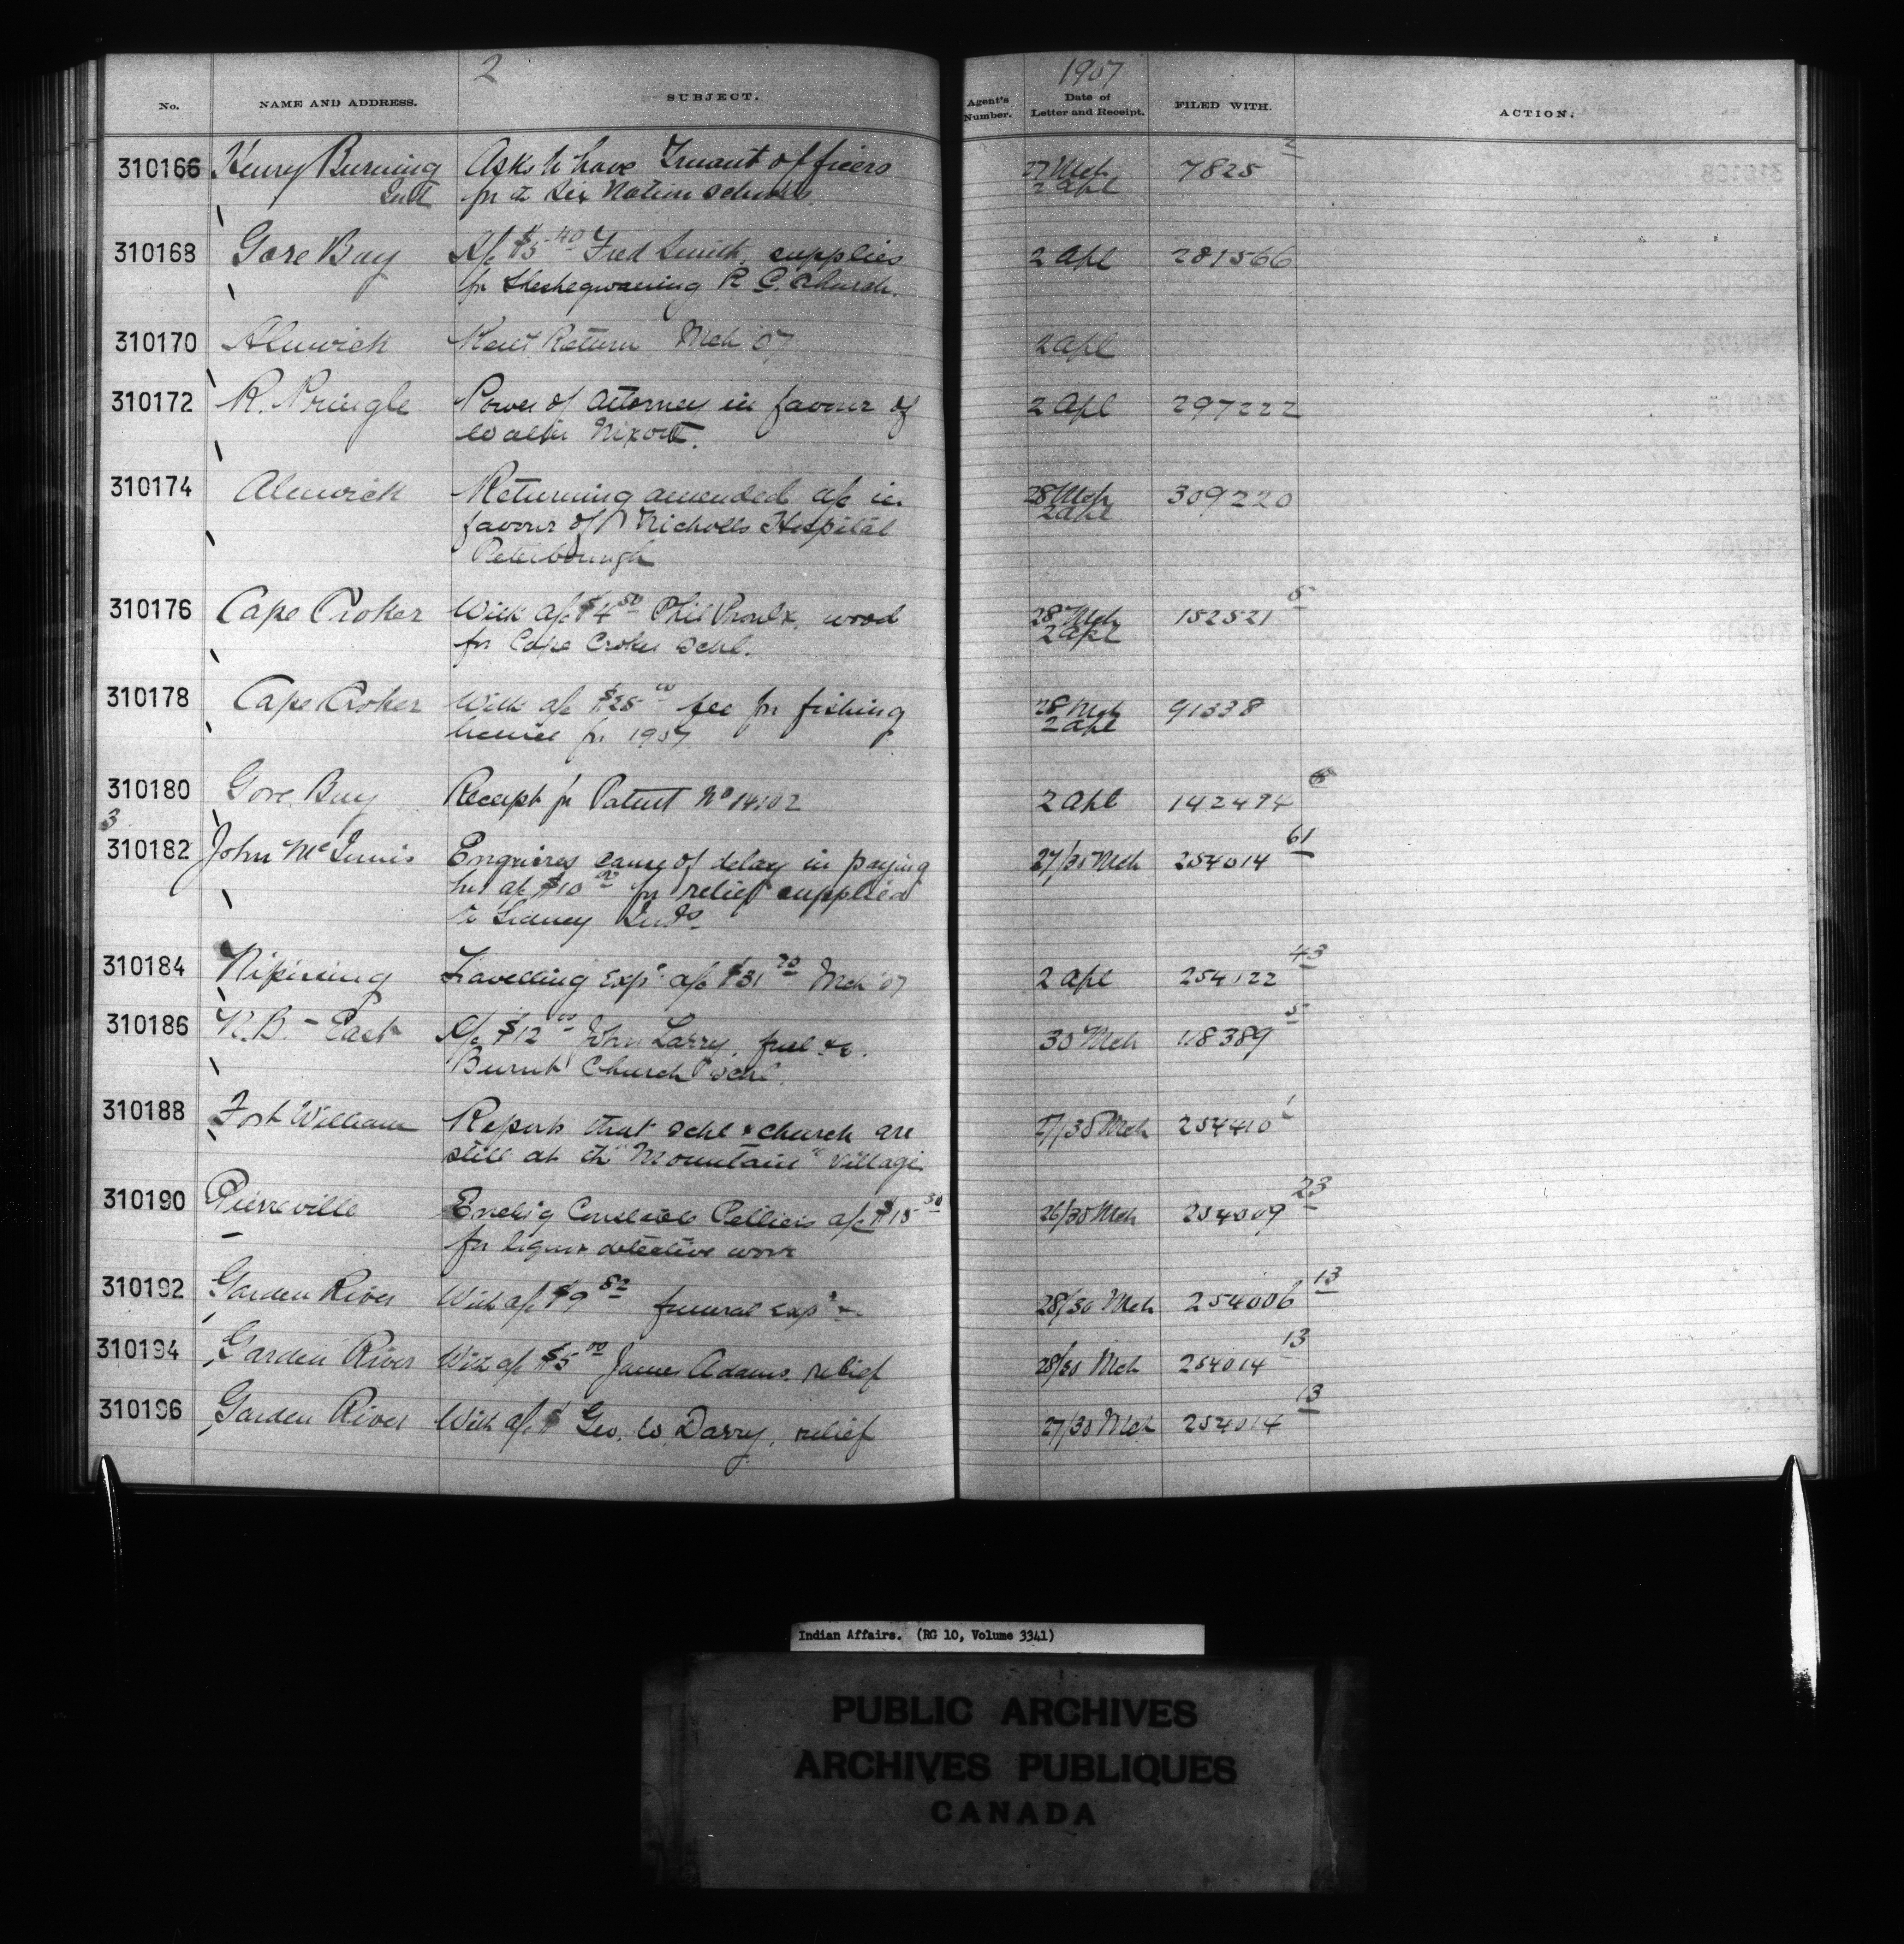 2
1907
No. NAME AND ADDRESS. SUBJECT. Agent's Number. Date of Letter and Receipt. FILED WITH. ACTION.
310166 Henry Burning Asks to have Truant officers 27 Mch 7825 2
Indt for the Six Nation schools. 2 Apl
310168 Gore Bay A/c $5 40 Fred Smith, supplies 2 Apl 281566
for Sheshegwaning R C. Church.
310170 Alnwick Rent Return Mch '07 2 Apl
310172 R. Pringle Power of Attorney in favour of 2 Apl 297222
Walter
310174 Alnwick Returning amended a/c in 28 Mch 309220
favour of Nicholls Hospital 2 Apl
Peterborough
310176 Cape Croker With a/c $4 50 Phil Proulx, wood 28 Mch 152521 5
for Cape Croker Schl. 2 Apl
310178 Cape Croker With a/c $25 00 fee for fishing 28 Mch 91338
license for 1907 2 Apl
310180 Gore Bay Receipt for Patent No 14102 2 Apl 142494
3
310182 John McInnis Enquires cause of delay in paying 27/30 Mch 254014 61
his a/c $10 00 for relief supplied
to Sidney Inds.
310184 Nipissing Travelling Exps a/c $31 70 Mch '07 2 Apl 254122 43
310186 N.B. - East A/c $12 00 John Larry, fuel &c. 30 Mch 118389 5
Burnt Church Schl.
310188 Fort William Reports that schl & church are 27/30 Mch 254410 1
still at the "Mountain" Village
310190 Pierreville Enclsg Constable a/c $15 30 26/30 Mch 254009 23
for liquor detective work
310192 Garden River With a/c $9 82 funeral exps 28/30 Mch 254006 13
310194 Garden River With a/c $5 00 James Adams, relief 28/30 Mch 254014 13
310196 Garden River With a/c $ Geo. W. Darry, relief 27/30 Mch 254014 13
Indian Affairs. (RG 10, Volume 3341)
PUBLIC ARCHIVES
ARCHIVES PUBLIQUES
CANADA